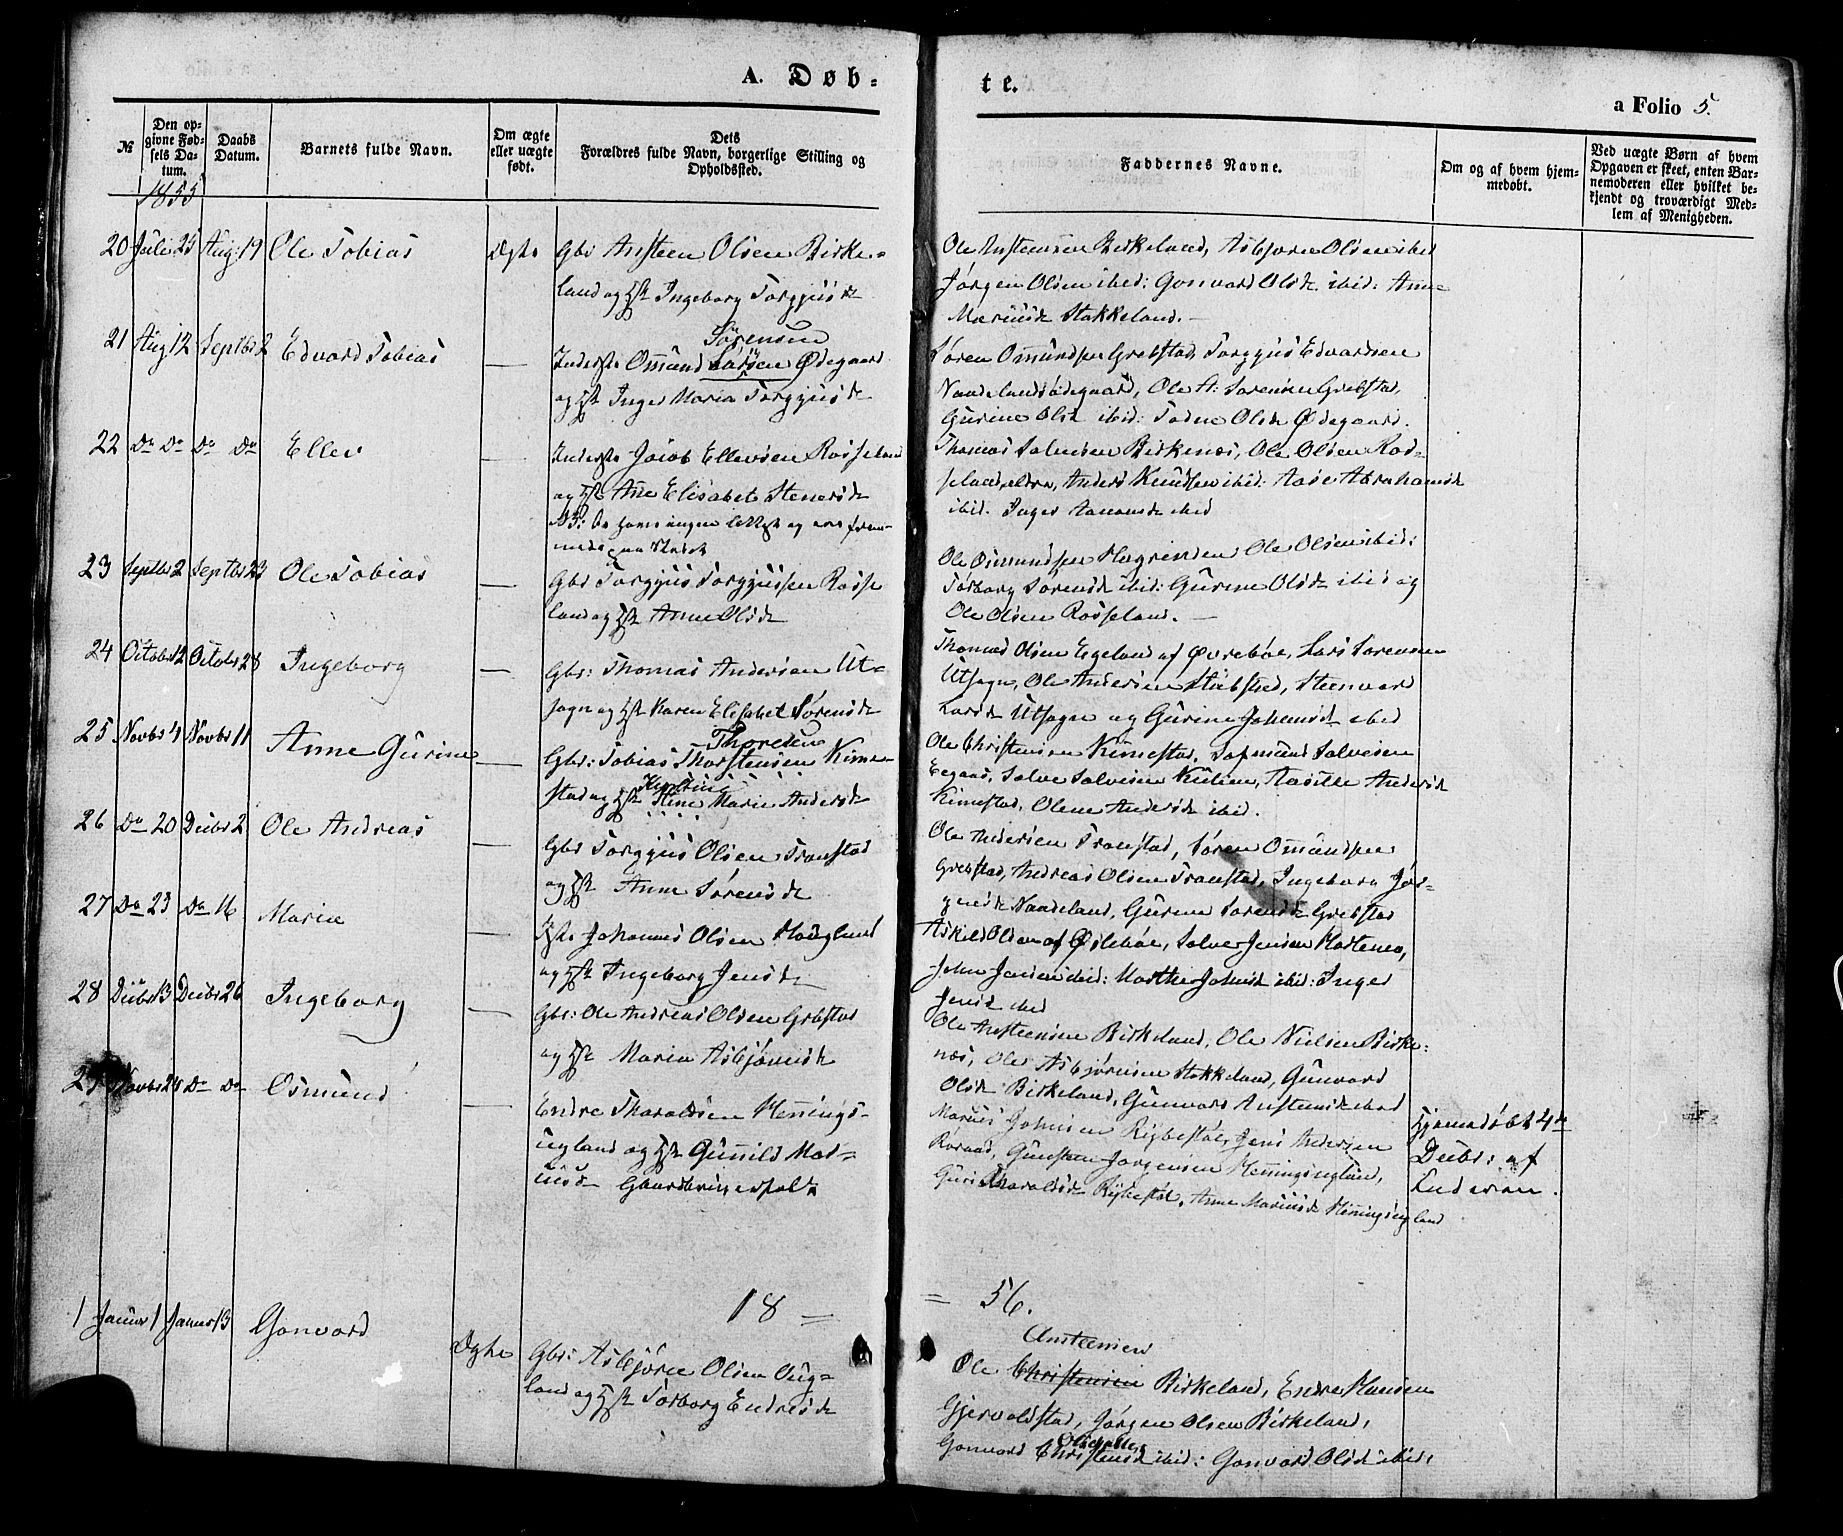 A. Døb=
te.
a Folio 5.
№
Den op=
givne Fød=
sels Da=
tum.
Daabs
Datum.
Barnets fulde Navn.
Om ægte
eller uægte
født.
Dets
Forældres fulde Navn, borgerlige Stilling og
Opholdssted.
Faddernes Navne.
Om og af hvem hjem=
medøbt.
Ved uægte Børn af hvem
Opgaven er skeet, enten Bar=
nemoderen eller hvilket be=
kjendt og troværdigt Med=
lem af Menigheden.
1855
20 Juli 25 Aug: 19 Ole Tobias Ægte Gbr Ansteen Olsen Birke=
land og Hst Ingeborg Torgjusd
Ole Ansteensen Birkeland, Asbjørn Olsen ibid
Jørgen Olsen ibid: Gonvord Olsd ibid: Anne
Mariusd Stakkeland. —
21 Aug 12 Septbr 2 Edvard Tobias —
Sørensen
Inderste Omund Larsen Ødegaard
og Hst Inger Maria Torgjusd
Søren Omundsen Grebstad, Torgjus Edvardsen
Naadelandsødegaard, Ole A: Sørensen Grebstad,
Gurine Olsd ibid: Todne Olsd Ødegaard.
22 Do Do Do Do Ellev —
Inderste Jacob Ellevsen Rosseland
og Hst Anne Elisabet Stenersd
NB: De have ingen
paa Stedet
Thomas Salvesen Birkenes, Ole Olsen Ros=
seland, Anders Knudsen ibid: Aase Abrahamsd
ibid. Inger Aanonsd ibid
23 Septbr 2 Septbr 23 Ole Tobias —
Gbr Torgjus Torgjussen Rosse
land og Hst Anne Olsd
Ole Osmundsen Ole Olsen ibid:
Torborg Sørensd ibid: Gurine Olsd ibid og
Ole Olsen Rosseland. —
24 Octobr 12 Octobr 28 Ingeborg —
Gbr: Thomas Andersen Ut=
sogn og Hst Karen Elisabet Sørensd
Thomas Olsen Egeland af Øvrebøe, Lars Sørensen
Utsogn, Ole Andersen Stubstad, Steenvord
Larsd Utsogn og Gurine Johansd ibid
25 Novbr 4 Novbr 11 Anne Gurine —
Thoresen
Gbr: Tobias Thorstensen Kime=
stad og Hst Stine Marie Andersd
Ole Christensen Kimestad, Salve Salvesen
Kimestad, Olene Andersd ibid.
26 Do 20 Decbr 2 Ole Andreas —
Gbr Torgjus Olsen Tronstad
og Hst Anne Sørensd
Ole Andersen Tronstad, Søren Omundsen
Grebstad, Andreas Olsen Tronstad, Ingeborg Jør=
gensd Naadeland, Gurine Sørensd Grebstad
27 Do 23 Do 16 Maria —
Johannes Olsen Houglund
og Hst Ingeborg Jensd
Askild Olsen af Øslebøe, Salve Jensen
John Jensen ibid: Marthe Johnsd ibid: Inger
Jensd ibid
28 Decbr 13 Decbr 26 Ingeborg —
Gbr: Ole Andreas Olsen Grebstad
og Hst Maria Asbjørnsd
Ole Ansteensen Birkeland, Ole Nielsen Birke=
nes, Ole Asbjørnsen Stakkeland, Gunvord
Olsd Birkeland, Gunvord Ansteensd ibid
29 Novbr 28 Do Do Osmund —
Endre Tharaldsen Hennings=
ugland og Hst Gunild Mar=
iusd
Marius Johnsen Jens Andersen
Gunsteen Jørgensen Henningsugland,
Guri Tharaldsd Anne Mariusd Henningsugland
Hjemmedøbt 4de
Decbr: af
Faderen.
18 =
= 56.
1 Januar 1 Januar 13 Gonvord Ægte
Gbr: Asbjørn Olsen Oug=
land og Hst Torborg Endresd
Ansteensen
Ole Christensen Birkeland, Endre Hansen
Gjervoldstad, Jørgen Olsen Birkeland,
Gonvord Christensd ibid: Gonvord Olsd ibid: